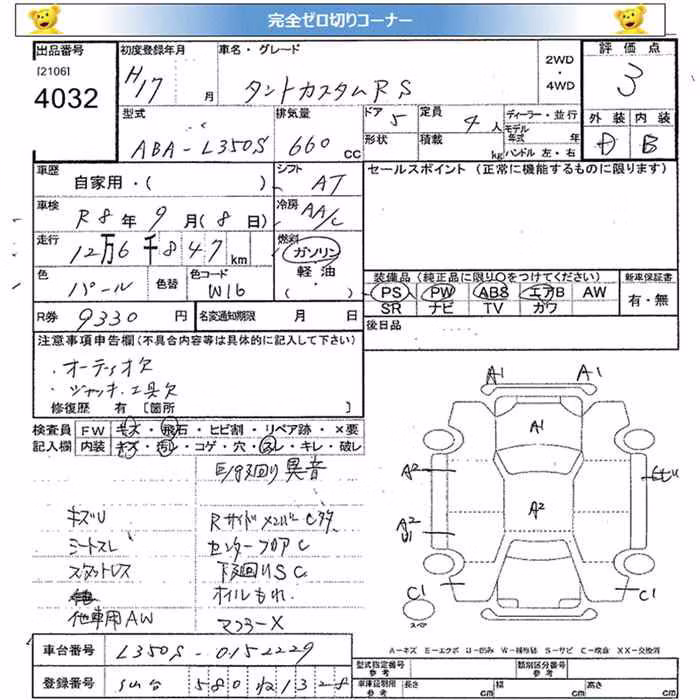 完全ゼロ切りコーナー
出品番号 初度登録年月 車名・グレード 評価点
[2106] H17 月 タントカスタムRS 2WD・4WD 3
4032 型式 排気量 ドア 5 定員 4人 ディーラー・並行 外装 内装
ABA-L350S 660 cc 形状 積載 kg モデル年式 年 ハンドル 左・右 D B
車歴 自家用・( ) シフト AT セールスポイント (正常に機能するものに限ります)
車検 R8年9月(8日) 冷房 AA/C
走行 12万6千847km 燃料 ガソリン
色 パール 色替 色コード W16 軽油 ・( )
装備品 (純正品に限り○をつけてください) 新車保証書
PS PW ABS エアB AW 有・無
SR ナビ TV カワ
R券 9330円 名変通知期限 月 日 後日品
注意事項申告欄(不具合内容等は具体的に記入して下さい)
・オーディオ欠
・ジャッキ、工具欠
修復歴 有 [箇所 ]
検査員 FW キズ・飛石・ヒビ割・リペア跡・×要
記入欄 内装 キズ・汚レ・コゲ・穴・スレ・キレ・破レ
E/g廻り異音
キズU Rサイドメンバー
シートスレ センターフロアC
スタッドレス 下廻りSC
オイルもれ
他車用AW マフラーX
A1 A1
A1
A2
A2
A2
U1
C1 C1
スペア
A-キズ E-エクボ U-凹み W-補修跡 S-サビ C-腐食 XX-交換済
車台番号 L350S-0152229
登録番号 仙台 580
型式指定番号 参考 類別区分番号 参考
車庫証明 参考 長さ cm 幅 cm 高さ cm